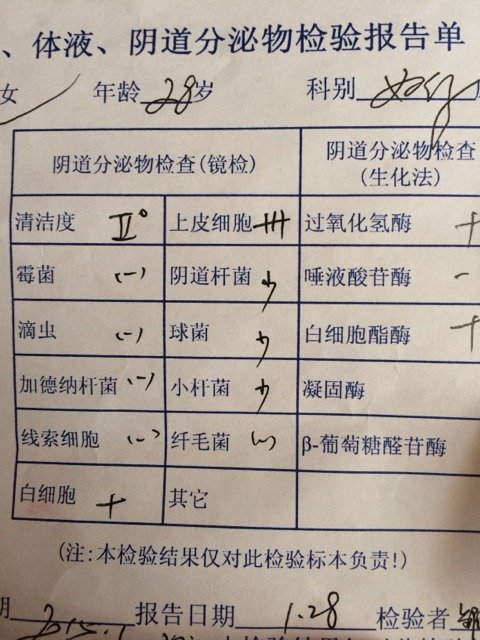 、体液、阴道分泌物检验报告单
女 年龄 28 岁 科别
阴道分泌物检查(镜检) 阴道分泌物检查
(生化法)
清洁度 Ⅱ° 上皮细胞 +++ 过氧化氢酶 +
霉菌 (-) 阴道杆菌 少 唾液酸苷酶 -
滴虫 (-) 球菌 少 白细胞酯酶 +
加德纳杆菌 (-) 小杆菌 少 凝固酶
线索细胞 (-) 纤毛菌 (-) β-葡萄糖醛苷酶
白细胞 + 其它
(注:本检验结果仅对此检验标本负责!)
期 2015.1 报告日期 1.28 检验者